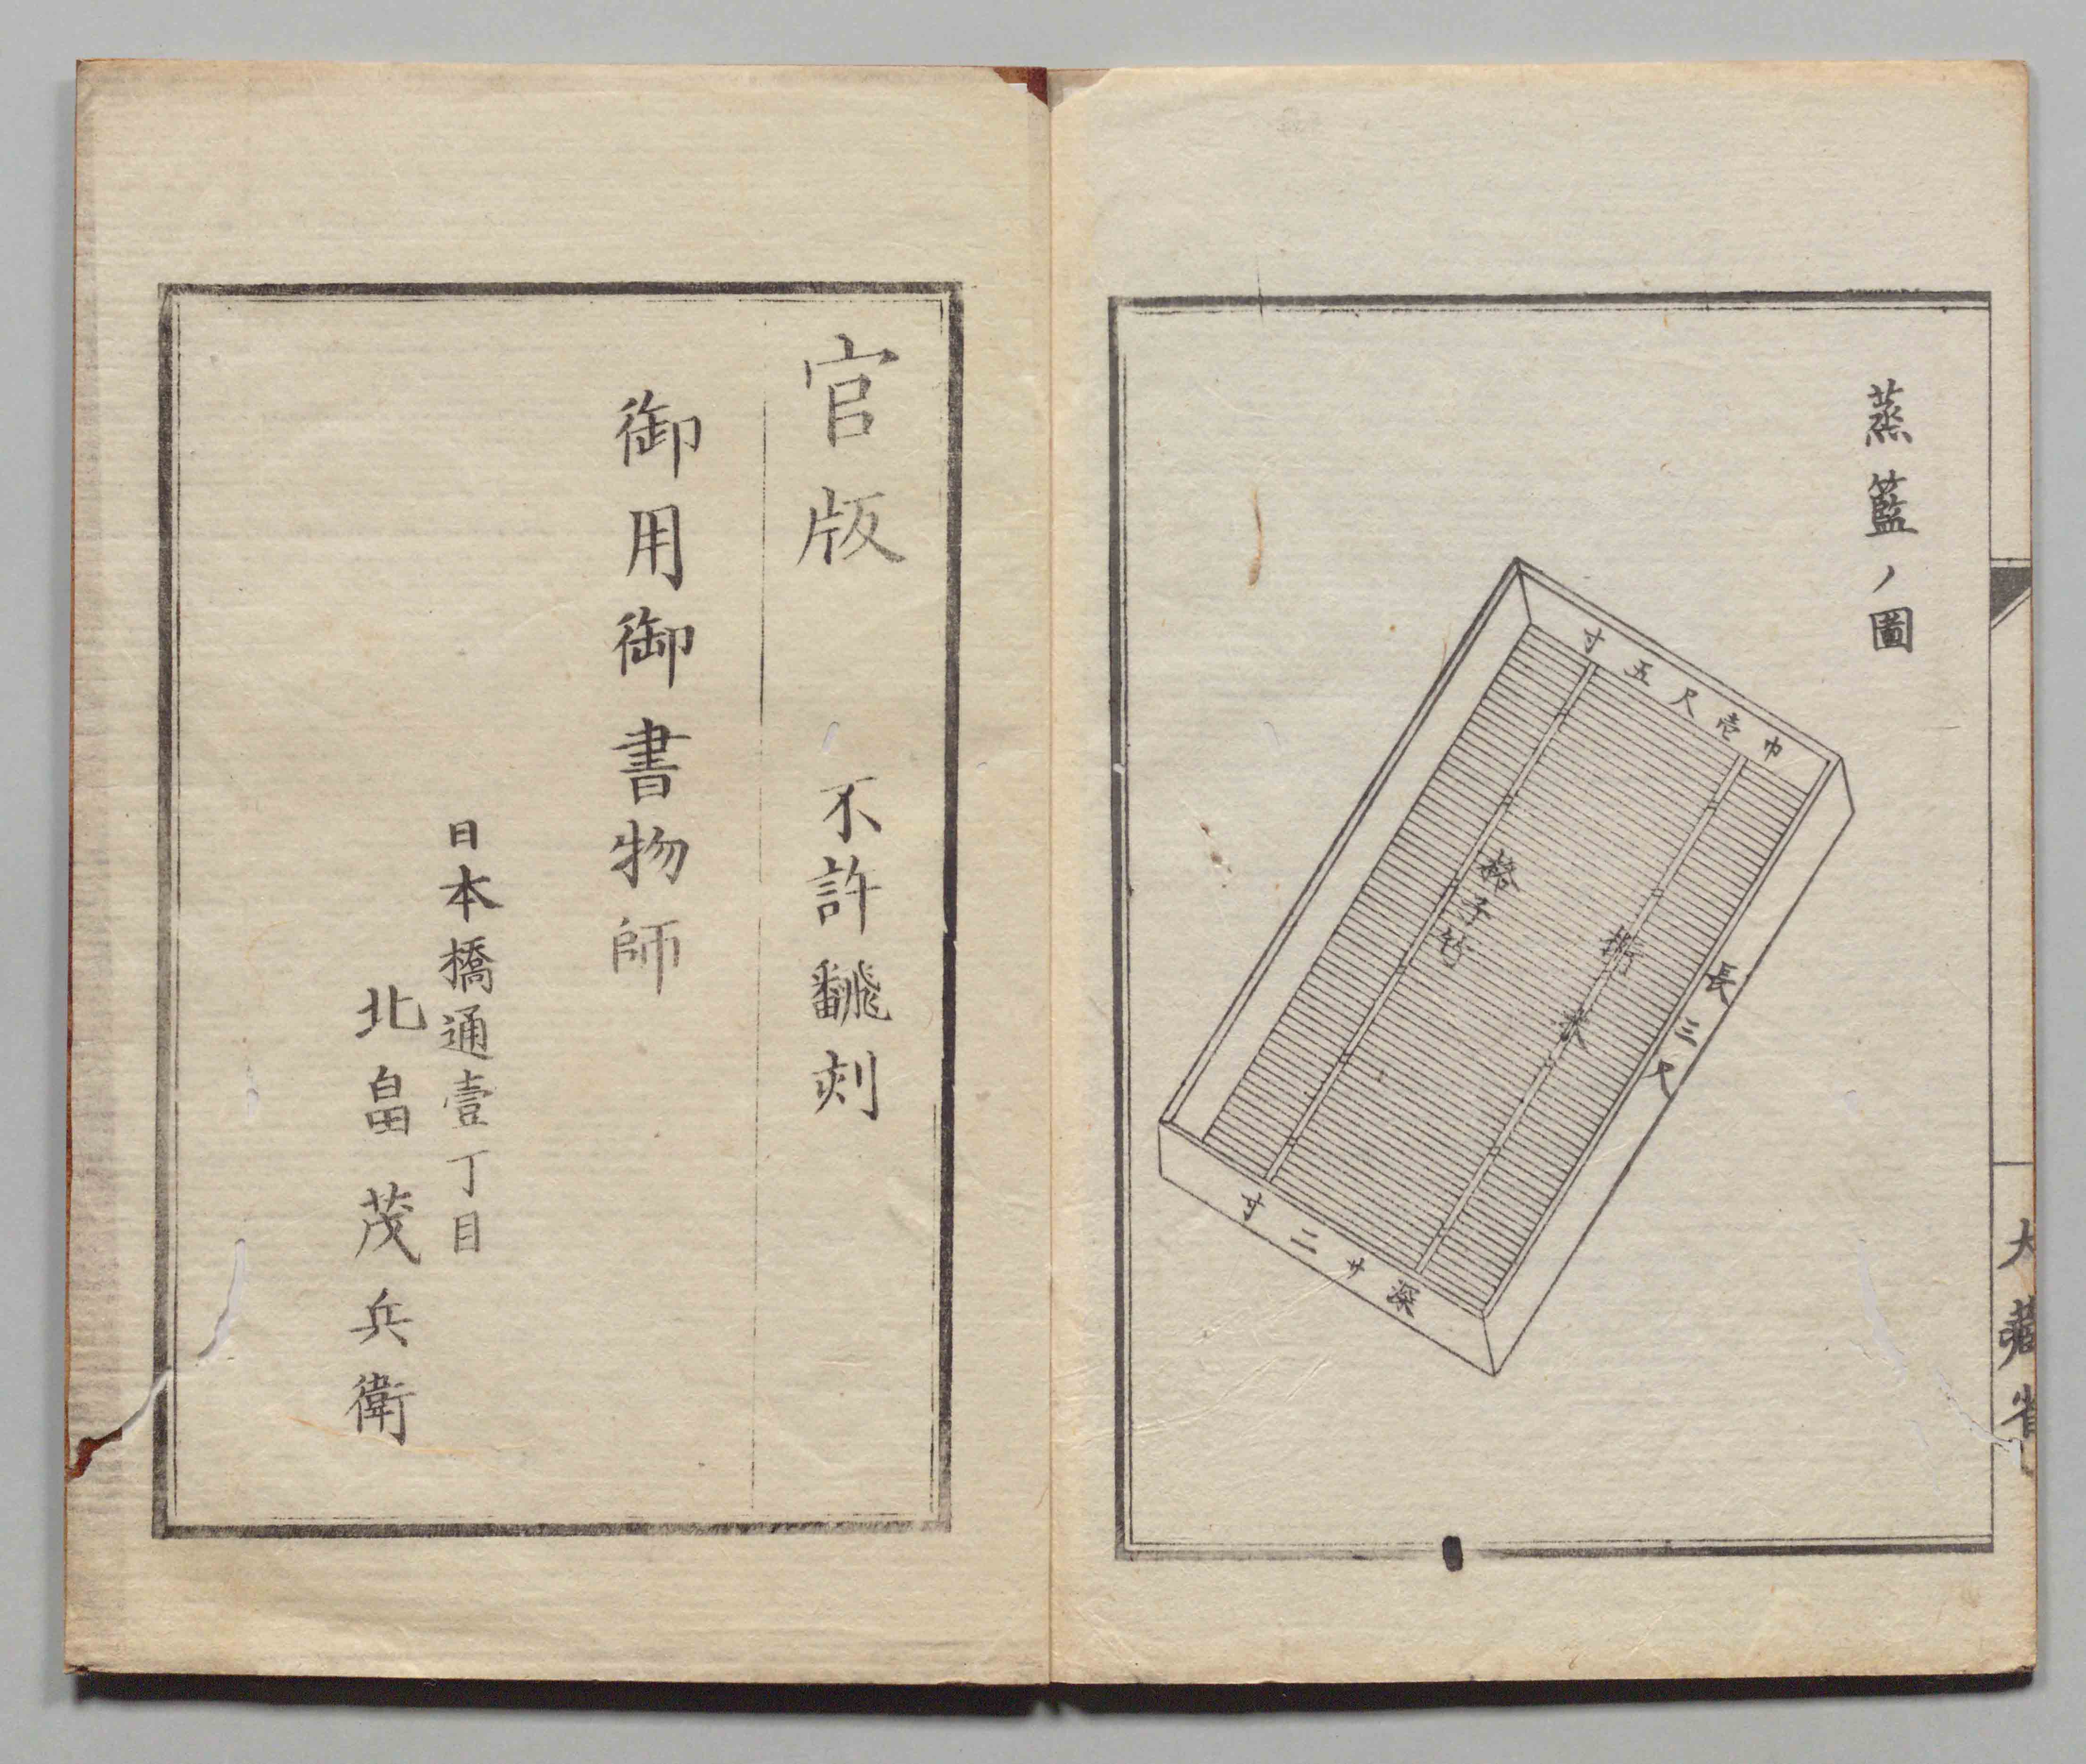 蒸籃ノ圖
巾壱尺五寸
長三尺
桁
格子竹
深サ二寸
大藏省
官版 不許飜刻
御用御書物師
日本橋通壹丁目
北畠茂兵衛